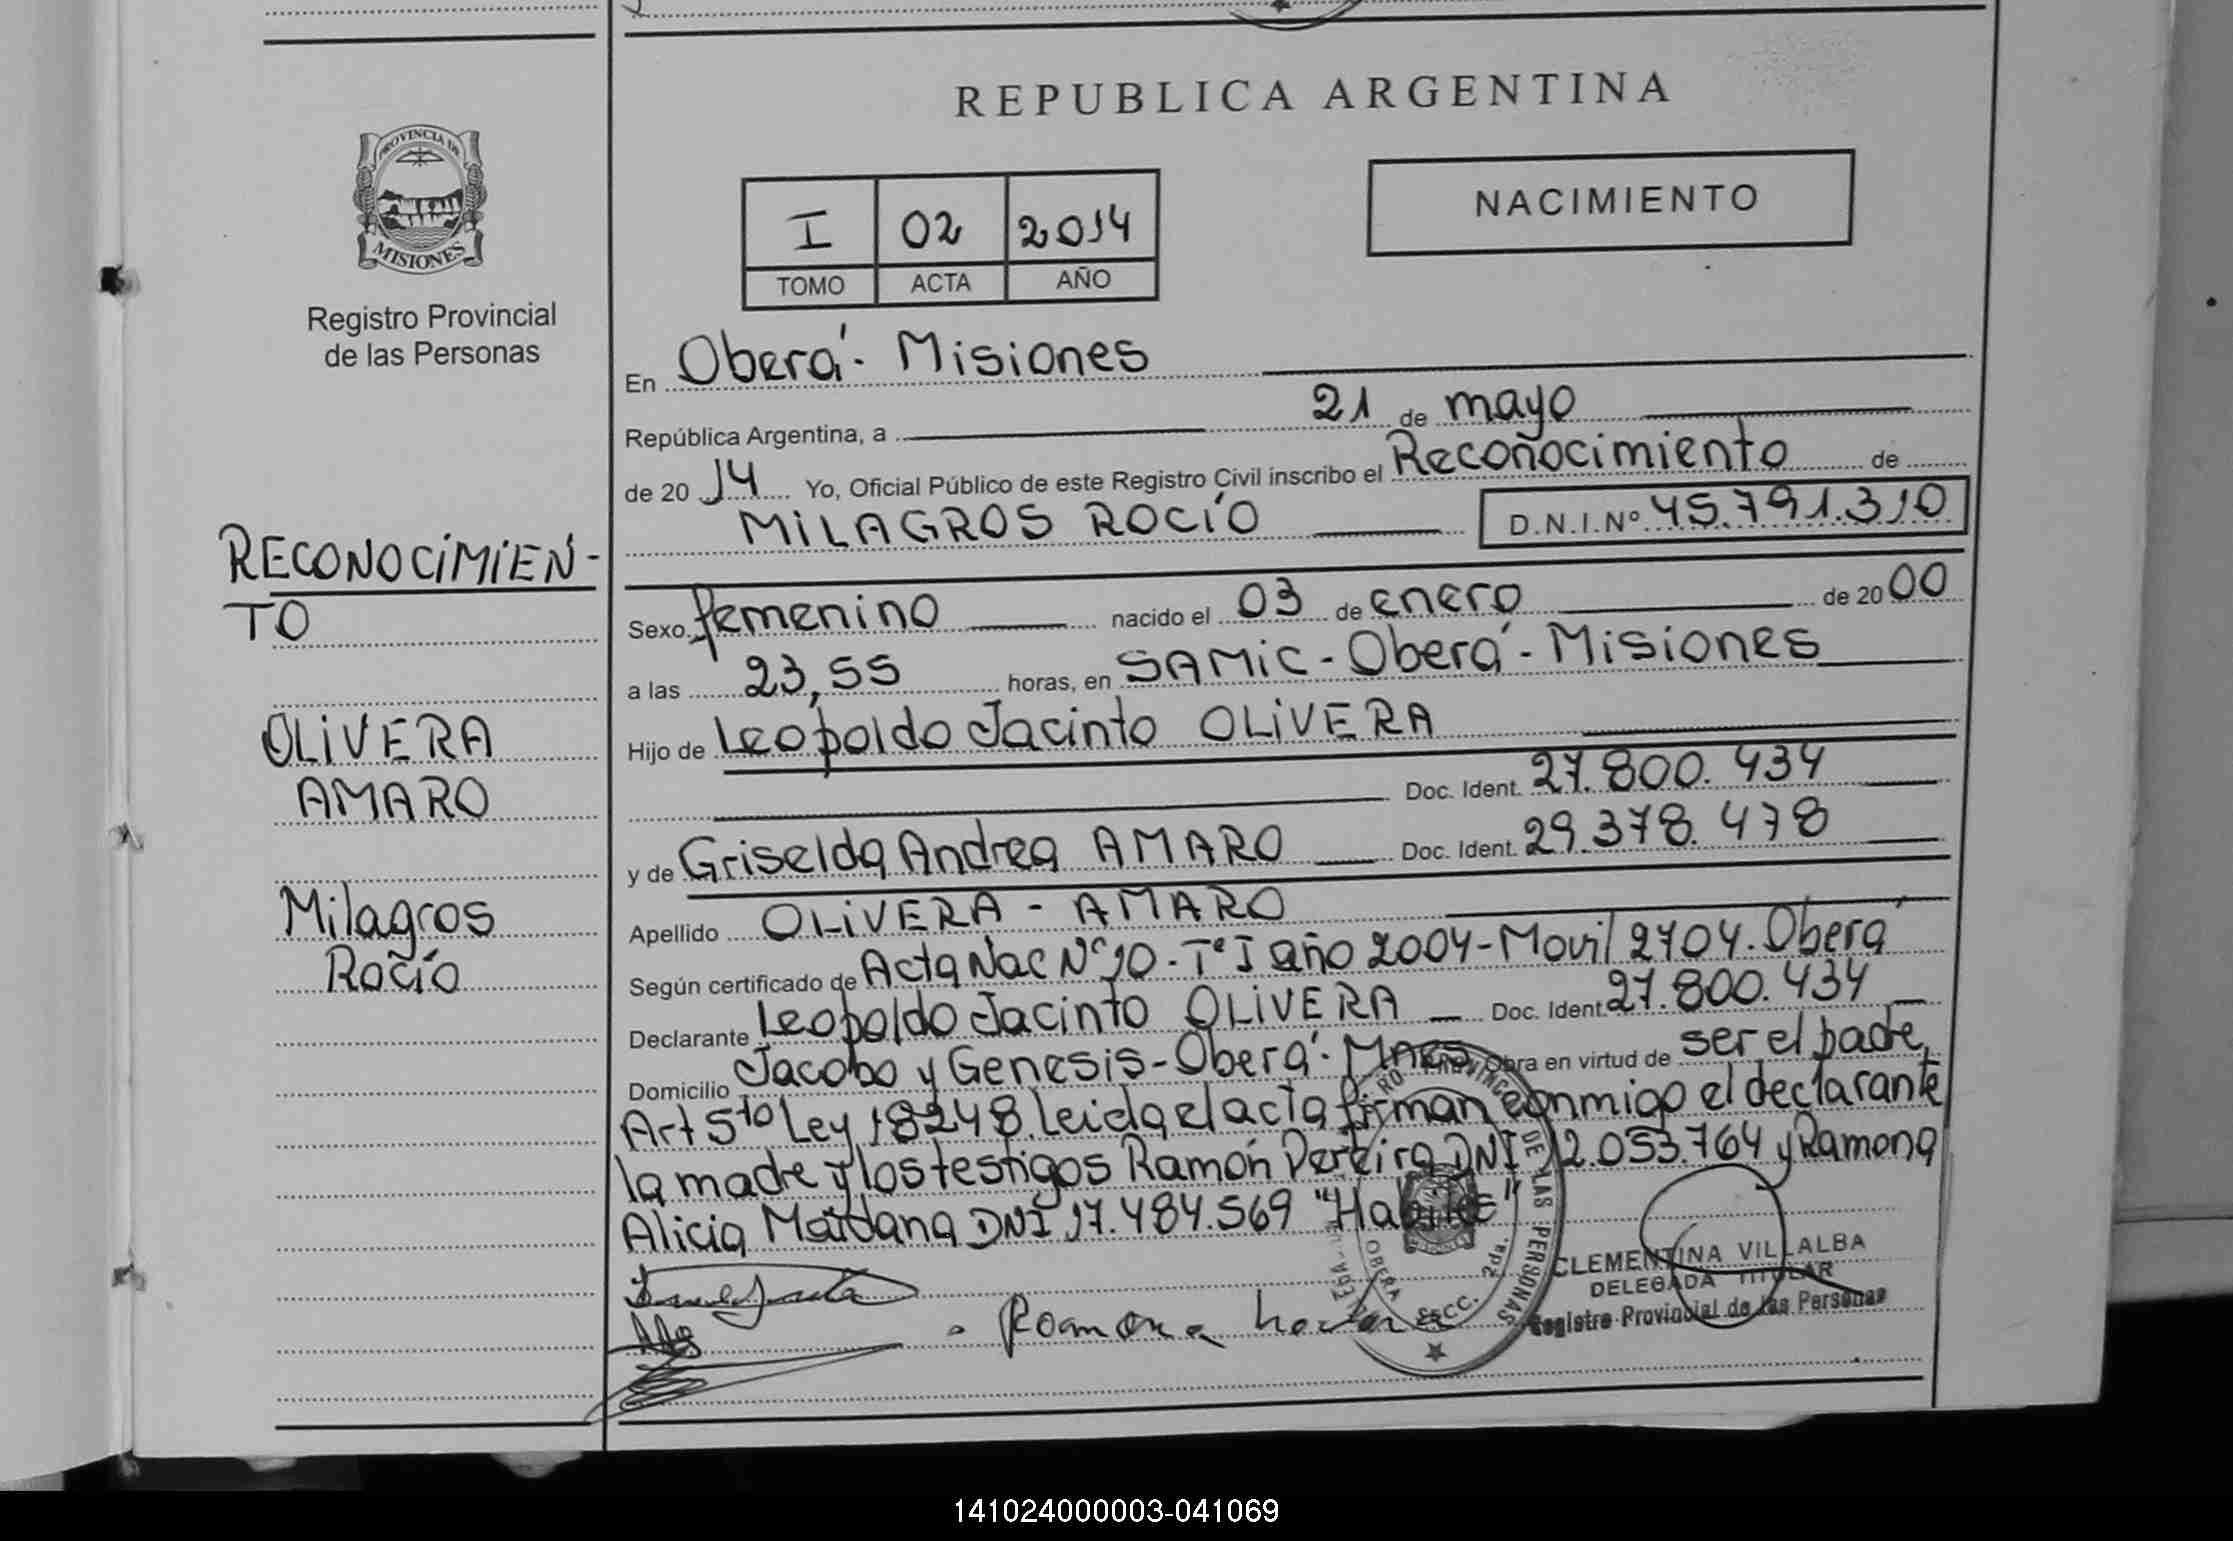 REPUBLICA ARGENTINA
PROVINCIA DE
MISIONES
Registro Provincial
de las Personas
I 02 2014
TOMO ACTA AÑO
NACIMIENTO
En Oberá - Misiones
República Argentina, a 21 de mayo
de 2014 Yo, Oficial Público de este Registro Civil inscribo el Reconocimiento de
MILAGROS ROCÍO D.N.I.Nº 45.791.310
RECONOCIMIEN-
TO
Sexo femenino nacido el 03 de enero de 2000
a las 23,55 horas, en SAMIC - Oberá - Misiones
OLIVERA
AMARO
Hijo de Leopoldo Jacinto OLIVERA
Doc. Ident. 27.800.434
y de Griselda Andrea AMARO Doc. Ident. 29.378.478
Milagros
Rocío
Apellido OLIVERA - AMARO
Según certificado de Acta Nac Nº 10 - Tº I año 2004 - Movil 2704. Oberá
Declarante Leopoldo Jacinto OLIVERA Doc. Ident. 27.800.434
Domicilio Jacobo y Genesis - Oberá - Mnes Obra en virtud de ser el padre,
Art 5to Ley 18248. Leida el acta firman conmigo el declarante
la madre y los testigos Ramón Pereira DNI 12.053.764 y Ramona
Alicia Maidana DNI 17.484.569 "Habiles"
CLEMENTINA VILLALBA
DELEGADA TITULAR
Registro Provincial de las Personas
Ramona
DE LAS PERSONAS
OBERA
2da. SECC.
141024000003-041069